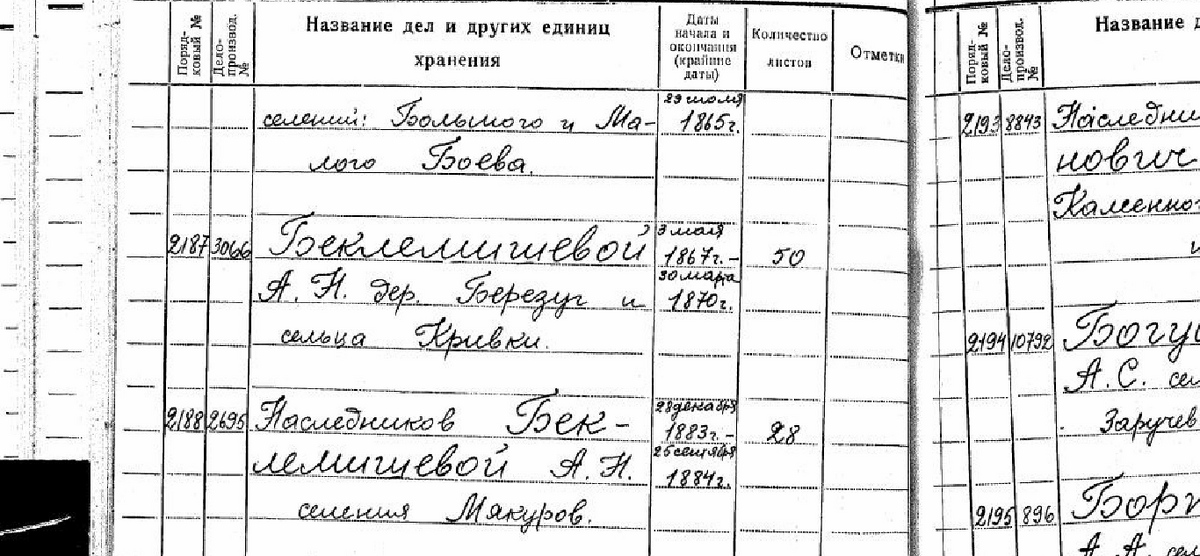 Поряд-
ковый №
Дело-
производ.
№
Название дел и других единиц
хранения
Даты
начала и
окончания
(крайние
даты)
Количество
листов
Отметки
селений: Большого и Ма-
лого Боева.
29 июля
1865г.
2187 3066 Беклемишевой
А. Н. дер. Березуг и
сельца Кривки.
3 мая
1867г. –
30 марта
1870г.
50
2188 2695 Наследников Бек-
лемишевой А. Н.
селения Мякуров.
28 декабря
1883г. –
25 сентября
1884г.
28
Поряд-
ковый №
Дело-
производ.
№
Название д
2193 8843 Наследни
нович
Каменног
и
2194 10792 Богу
А. С. сел
Заручев
2195 896 Бор
А. А. сел